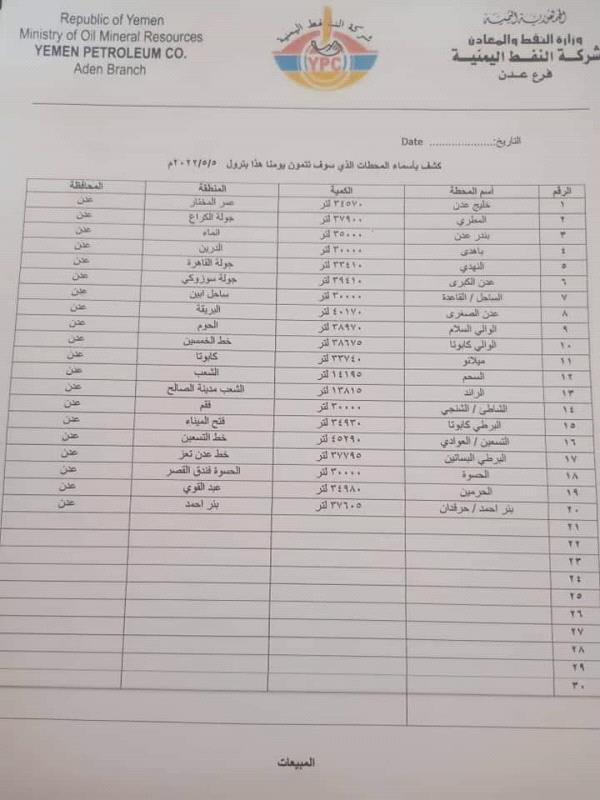 Republic of Yemen
Ministry of Oil Mineral Resources
YEMEN PETROLEUM CO.
Aden Branch
شركة النفط اليمنية
YPC
الجمهورية اليمنية
وزارة النفط والمعادن
شركة النفط اليمنية
فرع عدن
التاريخ: Date ....................
كشف بأسماء المحطات الذي سوف تتمون يومنا هذا بترول ٢٠٢٢/٥/٥م
الرقم أسم المحطة الكمية المنطقة المحافظة
١ خليج عدن ٣٤٥٧٠ لتر عمر المختار عدن
٢ المطري ٣٧٩٠٠ لتر جولة الكراع عدن
٣ بندر عدن ٣٥٠٠٠ لتر الماء عدن
٤ باهدى ٣٠٠٠٠ لتر الدرين عدن
٥ النهدي ٣٣٤١٠ لتر جولة القاهرة عدن
٦ عدن الكبرى ٣٩٤١٠ لتر جولة سوزوكي عدن
٧ الساحل / القاعدة ٣٠٠٠٠ لتر ساحل ابين عدن
٨ عدن الصغرى ٤٠١٧٠ لتر البريقة عدن
٩ الوالي السلام ٣٨٩٧٠ لتر الحوم عدن
١٠ الوالي كابوتا ٣٨٦٧٥ لتر خط الخمسين عدن
١١ ميلانو ٣٣٧٤٠ لتر كابوتا عدن
١٢ السحم ١٤١٩٥ لتر الشعب عدن
١٣ الرائد ١٣٨١٥ لتر الشعب مدينة الصالح عدن
١٤ الشاطئ / الشنجي ٣٠٠٠٠ لتر فقم عدن
١٥ البرطي كابوتا ٣٤٩٣٠ لتر فتح الميناء عدن
١٦ التسعين / العوادي ٤٥٢٩٠ لتر خط التسعين عدن
١٧ البرطي البساتين ٣٧٧٩٥ لتر خط عدن تعز عدن
١٨ الحسوة ٣٠٠٠٠ لتر الحسوة فندق القصر عدن
١٩ الحرمين ٣٤٩٨٠ لتر عبد القوي عدن
٢٠ بئر احمد / حرفدان ٣٧٦٠٥ لتر بئر احمد عدن
٢١
٢٢
٢٣
٢٤
٢٥
٢٦
٢٧
٢٨
٢٩
٣٠
المبيعات